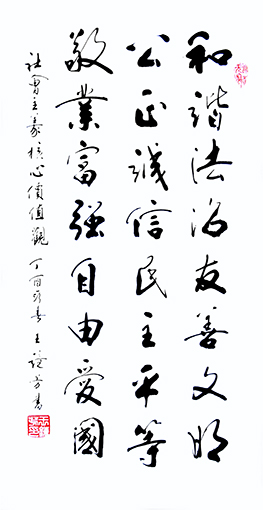 和諧法治友善文明
公正誠信民主平等
敬業富强自由愛國
社會主義核心價值觀 丁酉年春 王 芳書